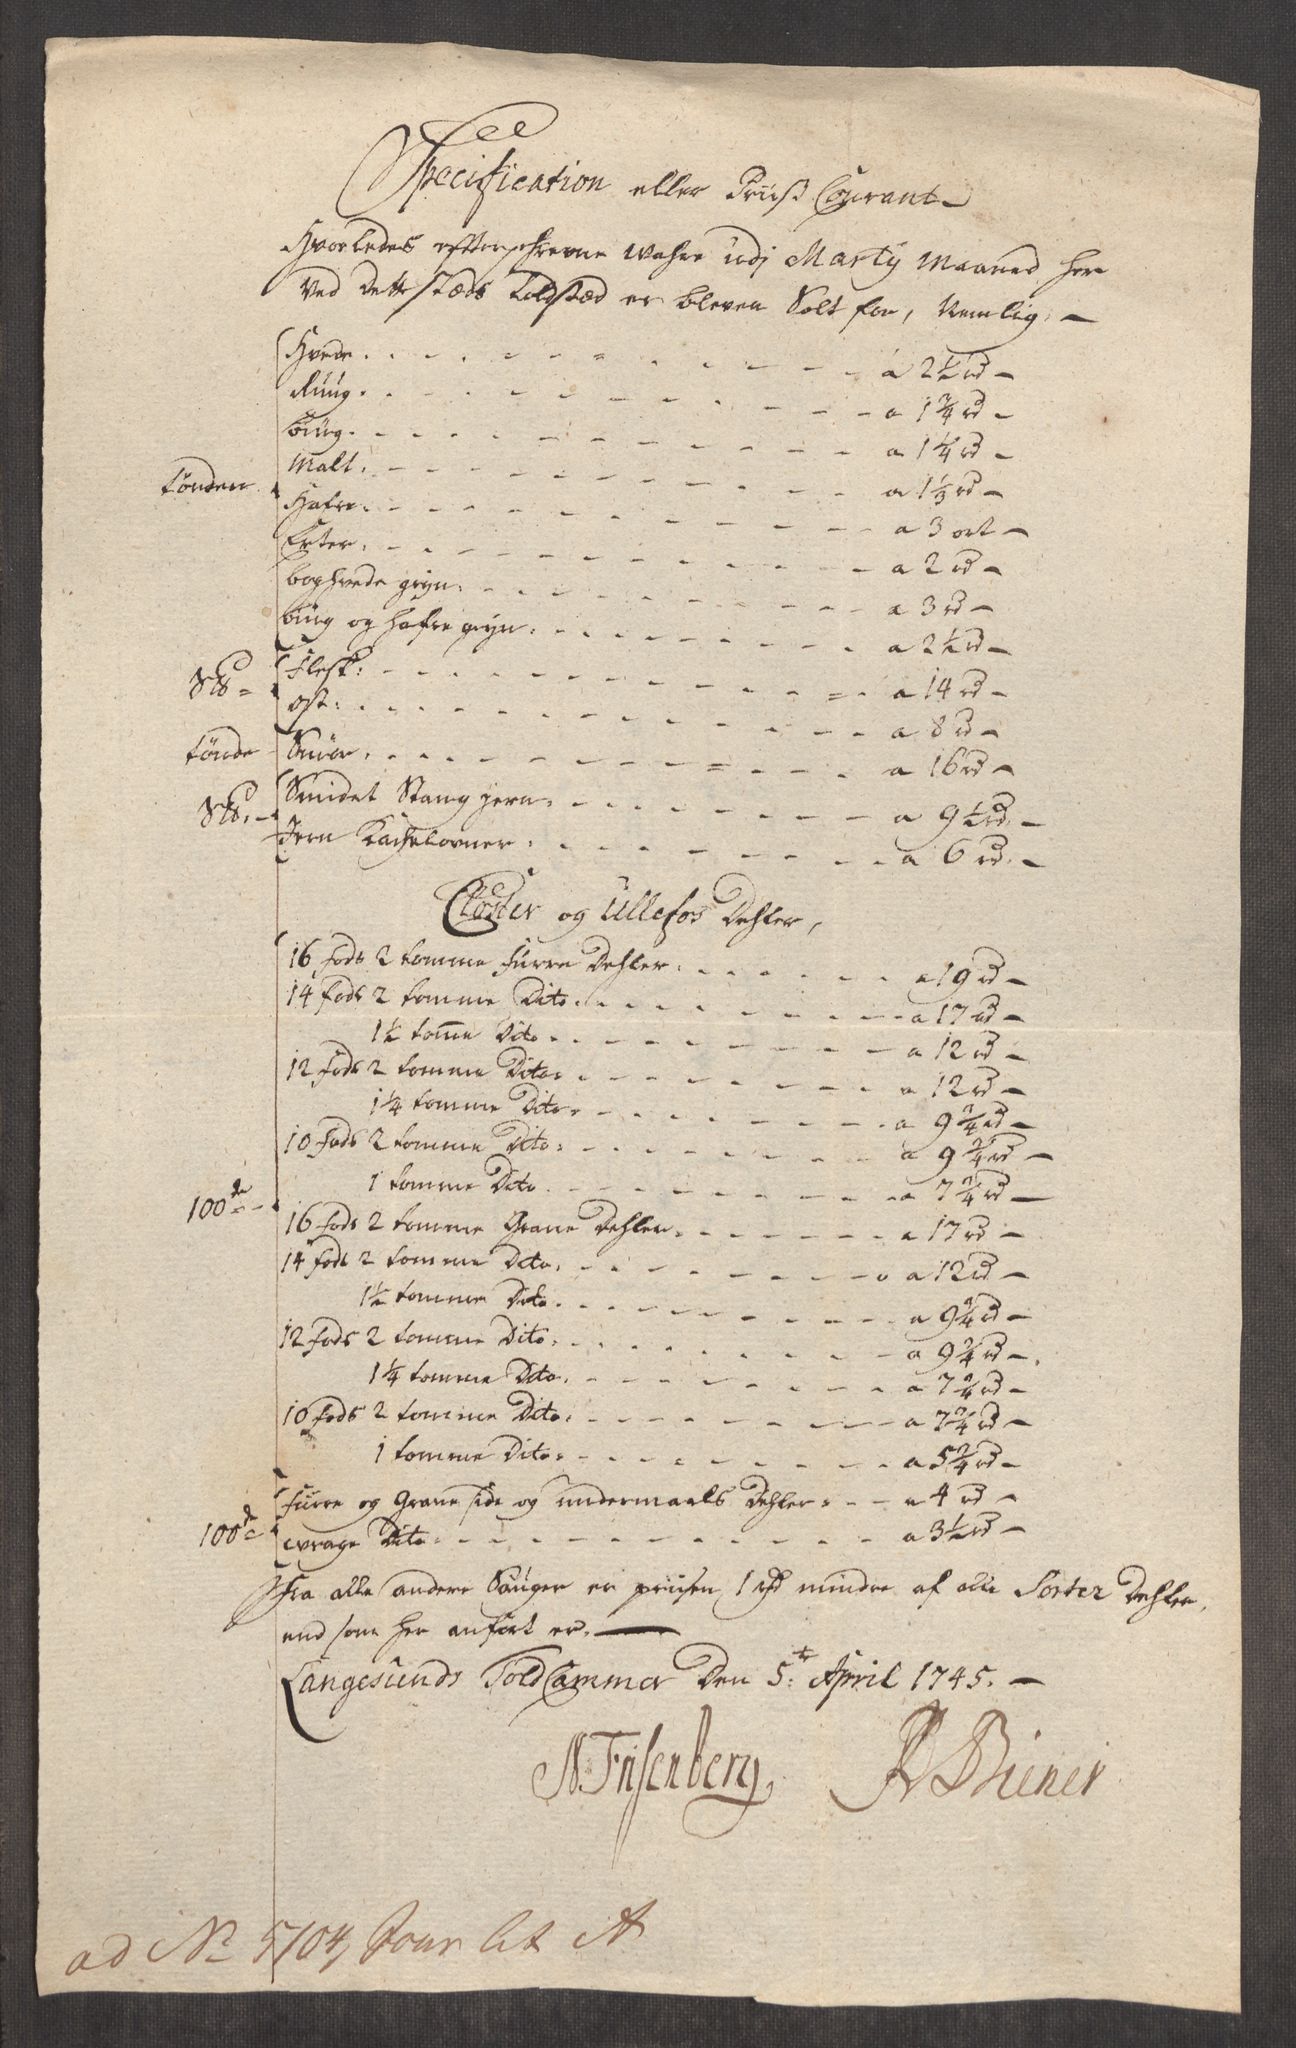 Specification eller Priiss Courant
Hvorledes efterschrevne Wahre udj Martij Maaned her
Ved dette stæds Toldstæd er bleven Solt for, Nemlig:
Hvede a 2½ rd
Ruug a 1¾ rd
Büug a 1¼ rd
Malt a 1⅓ rd
Tønden
Hafre a 3 ort
Erter a 2 rd
boghvede gryn a 3 rd
büug og hafre gryn a 2½ rd
S℔ Flesk a 14 rd
Ost a 8 rd
Tønde Smør a 16 rd
S℔ Smidet Stang jern a 9½ rd
Jern Kachelovner a 6 rd
Closter og Ullefos Dehler,
16 fods 2 tomme furre Dehler a 19 rd
14 fods 2 tomme Dito a 17 rd
1½ tomme Dito a 12 rd
12 fods 2 tomme Dito a 12 rd
1¼ tomme Dito a 9¾ rd
10 fods 2 tomme Dito a 9¾ rd
1 tomme Dito a 7¾ rd
100de
16 fods 2 tomme Grane Dehler a 17 rd
14 fods 2 tomme Dito a 12 rd
1½ tomme Dito a 9¾ rd
12 fods 2 tomme Dito a 9¾ rd
1¼ tomme Dito a 7¾ rd
10 fods 2 tomme Dito a 7¾ rd
1 tomme Dito a 5¾ rd
furre og Grane side og undermaals Dehler a 4 rd
100de wrage Dito a 3½ rd
Fra alle andere Sauger er priisen 1 rd mindre af alle Sorter Dehler,
end som her anført er.
Langesunds Told Cammer Den 5te April 1745.
N Frisenberg
ad No 5104, Tour lit A